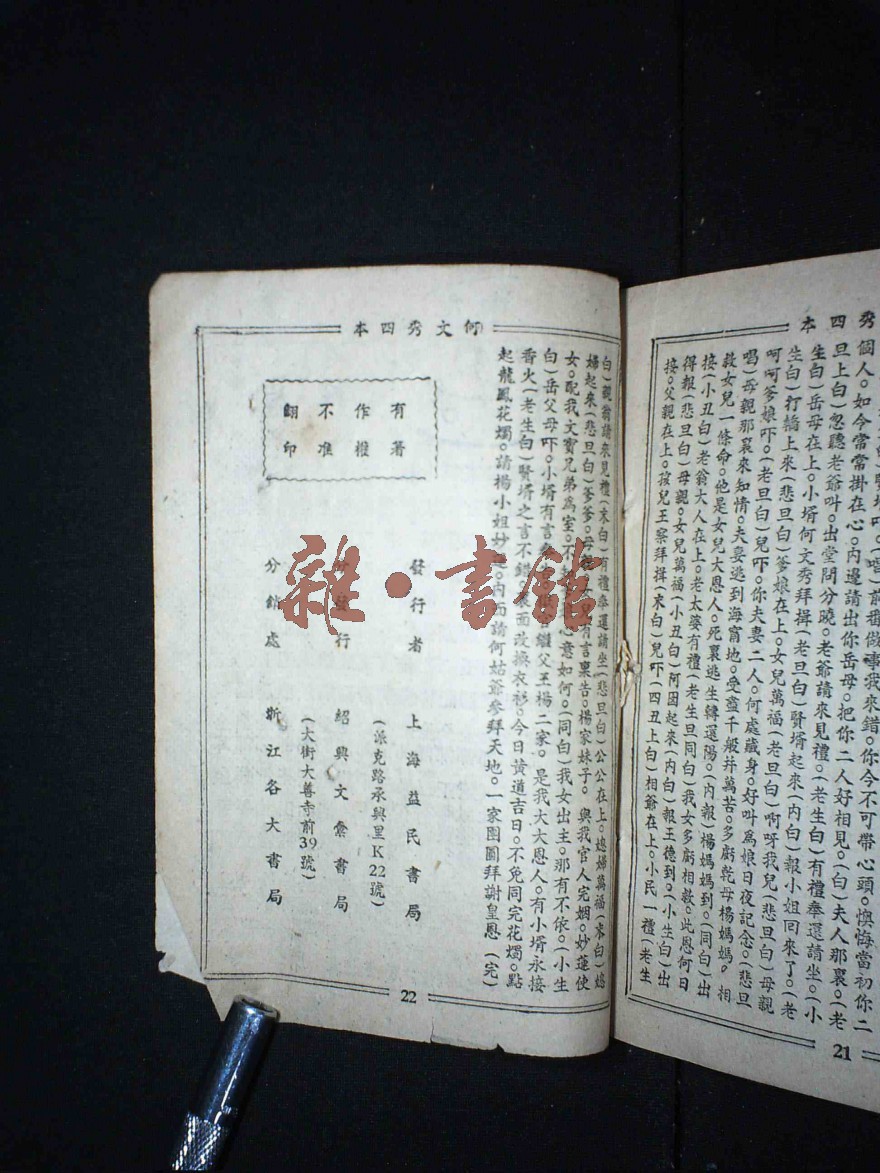 秀四本
秀個人。如今常常掛在心。內邊請出你岳母。把你二人好相見。(白)夫人那裏。(老
旦上白)忽聽老爺叫。出堂問分曉。老爺請來見禮。(老生白)有禮奉還請坐。(小
生白)岳母在上。小壻何文秀拜揖(老旦白)賢壻起來(內白)報小姐回來了。(老
生白)打轎上來(悲旦白)爹娘在上。女兒萬福(老旦白)啊呀我兒(悲旦白)母親
呵呵爹娘吓。(老旦白)兒吓。你夫妻二人。何處藏身。好叫爲娘日夜記念。(悲旦
唱)母親那裏來知情。夫妻逃到海甯地。受盡千般幷萬苦。多虧乾母楊媽媽。相
救女兒一條命。他是女兒大恩人。死裏逃生轉還陽。(內報)楊媽媽到。(同白)出
接(小丑白)老翁大人在上。老太婆有禮(老生旦同白)我女多虧相救。此恩何日
得報(悲旦白)母親。女兒萬福(小丑白)阿囡起來(內白)報王德到。(小生白)出
接。父親在上。孩兒王察拜揖(末白)兒吓(四丑上白)相爺在上。小民一禮(老生
21
何文秀四本
白)親翁請來見禮(末白)有禮奉還請坐(悲旦白)公公在上。媳婦萬福(末白)媳
婦起來(悲旦白)爹爹。母親。女兒有言稟告。楊家妹子。與我官人完姻。妙蓮使
女。配我文寳兄弟爲室。不心意如何。(同白)我女出主。那有不依。(小生
白)岳父母吓。小壻有言繼父王楊二家。是我大大恩人。有小壻永接
香火(老生白)賢壻之言不錯。裏面改換衣衫。今日黃道吉日。不免同完花燭。點
起龍鳳花燭。請楊小姐妙。內面請何姑爺參拜天地。一家團圓拜謝皇恩(完)
有著
作權
不准
翻印
發行者 上海益民書局
(派克路承興里K22號)
分發行 紹興文彙書局
(大街大善寺前39號)
分銷處 浙江各大書局
22
雜·書館